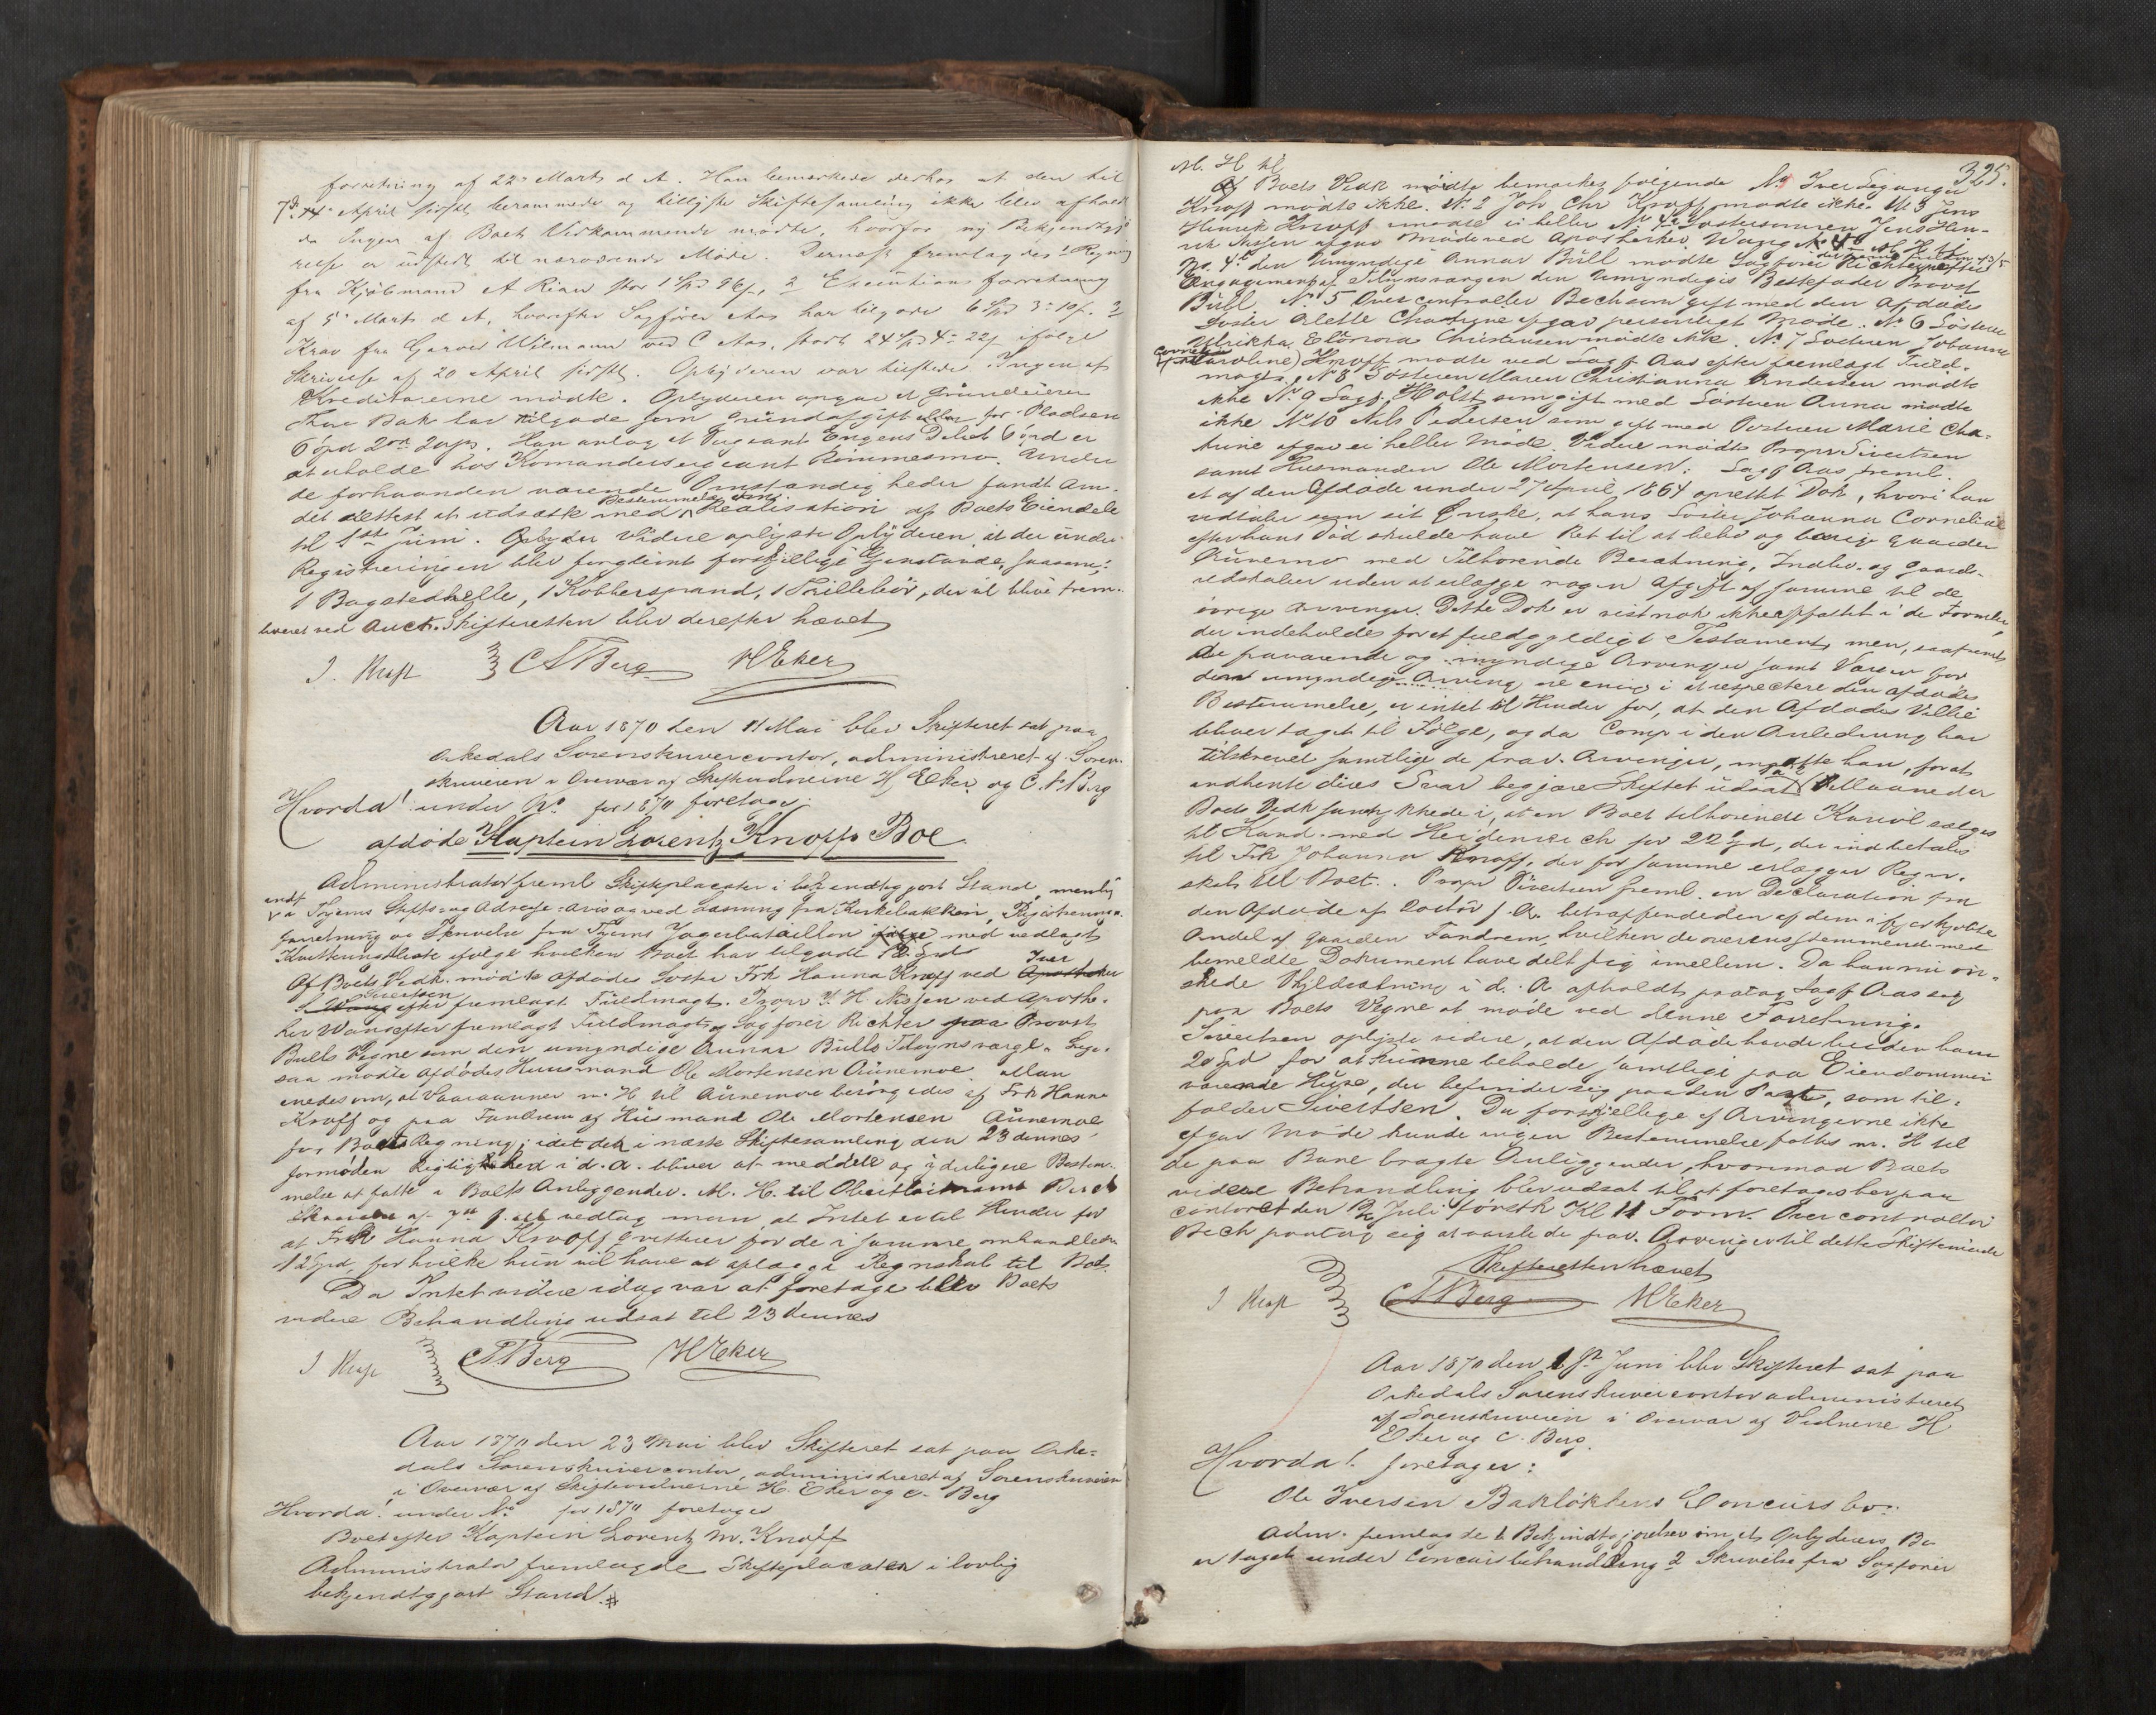 forretning af 22de Marts d A. Han bemærkede derhos at den til
7de April sidstl berammede og tillyste Skiftesamling ikke blev afholdt
da Ingen af Boets Vedkommende mødte, hvorfor ny Bekjendtgjø
relse er udstedt til nærværende Møde. Dernæst fremlagdes 1 Regning
fra Kjøbmand A Rian stor 1 Spd 96 s, 2 Executionsforretning
af 5te Marts d A, hvorefter Sagfører Aas har tilgode 6 Spd 3 10 s. 3
Krav fra Garver Wilmann ved C Aas, stort 24 Spd 4 22 s ifølge
Skrivelse af 20 April sidstl. Opbyderen var tilstede. Ingen af
Kreditorerne mødte. Opbyderen opgav at Grundeieren
Thore Bak har tilgode som Grundafgift for Pladsen
6 Spd 2 Ort 20 s. Han antog at Sergeant Engens Debet 6 Spd er
at erholde hos Komandersergeant Rømmesmo. Under
de forhaanden værende Omstændigheder fandt Am-
det rettest at udsætte med Bestemmelse om Realisation af Boets Eiendele
til 1st Juni. Opbyder videre oplyste Opbyderen at der under
Registreringen blev forglemt forskjellige Gjenstande, saasom:
1 Bagstedhelle, 1 Kobberspand, 1 Trillebør, der vil blive frem-
leveret ved Auct. Skifteretten blev derefter hævet
J. Krap CABerg HEker
Aar 1870 den 11 Mai blev Skifteret sat paa
Orkedals Sorenskrivercontor, administreret af Soren-
skriveren i Overvær af Skiftevidnerne H Eker og C A Berg
Hvorda! under No for 1870 foretoges
afdøde Kaptein Lorentz Knoffs Boe
Administrator freml Skifteplacater i bekjendtgjort Stand, nemlig
indt i Trjems Stifts og Adresse-avis og ved Læsning fra Kirkebakken, Registrerings-
forretning og Skrivelse fra Trjems Jægerbatallion med vedlagt
Kvitteringsliste ifølge hvilken Boet har tilgode 12 Spd
Af Boets Vedk. mødte afdødes Søster Frk Hanna Knoff ved Iver
Sivertsen efter fremlagt Fuldmagt. Propr J. H. Nissen ved Apothe-
ker Wang efter fremlagt Fuldmagt og Sagfører Richter paa Provst
Bulls Vegne som den umyndige Annar Bulls Tilsynsværge. Lige-
saa mødte afdødes Huusmand Ole Mortensen Aunemoe. Man
enedes om, at Vaaraanner m. H til Aunemoe besørgedes af Frk Hanna
Knoff og paa Fandrem af Husmand Ole Mortensen Aunemoe
for Boets Regning, idet der i næste Skiftesamling den 23 dennes
formøden Rigtighed i d. A. bliver at meddele og yderligere Bestem-
melse at fatte i Boets Anliggender. M. H. til Oberstleitnant Birch
Skrivelse af 7de vedtog man, at Intet er til Hinder for
at Frk Hanna Knoff qvitterer for de i samme omhandlede
12 Spd, for hvilke hun vil have at aflægge Regnskab til Boet.
Da Intet videre idag var at foretage blev Boets
videre Behandling udsat til 23 dennes
J Krap CABerg HEker
Aar 1870 den 23 Mai blev Skifteret sat paa Orke-
dals Sorenskrivercontor, administreret af Sorenskriveren
i Overvær af Skiftevidnerne H. Eker og C. Berg
Hvorda! under No for 1870 foretoges
Boet efter Kaptein Lorentz M. Knoff
Administrator fremlagde Skifteplacaten i lovlig
bekjendtgjort Stand.
325.
M. H til
Af Boets Vedk mødte bemærkes følgende No 1 Iver Seganger
Knoff mødte ikke. No 2 Joh Chr Knoff mødte ikke. No 3 Jens
Henrik Knoff mødte ei heller No 4a Søstersønnen Jens Hen-
rik Nissen afgav Møde ved Apotheker Wang
No. 4b den Umyndige Annar Bull mødte Sagfører Richter efter
Engagement af Tilsynsværgen den Umyndiges Bestefader Provst
Bull. No 5 Overcontrollør Bech som gift med den Afdødes
Søster Alette Chatrine afgav personligt Møde. No 6 Søsteren
Ulrikka Elonora Christensen mødte ikke. No 7 Søsteren Johanna
Cornelia Knoff mødte ved Sagf Aas efter fremlagt Fuld-
magt. No 8 Søsteren Maren Christianna Andersen mødte
ikke No 9 Sagf. Holst som gift med Søsteren Anna mødte
ikke No 10 Nils Pedersen som gift med Søsteren Marie Cha-
trine afgav ei heller Møde. Videre mødte Propr Sivertsen
samt Husmanden Ole Mortensen. Sagf Aas freml.
et af den Afdøde under 27 April 1864 oprettet Dok, hvori han
udtaler som sit Ønske, at hans Søster Johanna Cornelia
efter hans Død skulde have Ret til at bebo og bruge Gaarden
Aunemo med Tilhørende Besætning, Indbo- og Gaards-
redskaber uden at erlægge nogen Afgift af samme til de
øvrige Arvinger. Dette Dok er vistnok ikke affattet i de Former,
der indeholdes for et fuldgyldigt Testament, men, saafremt
de fraværende og myndige Arvinger samt Værgen for
den umyndige Arving ere enige i at respectere den afdødes
Bestemmelse, er intet til Hinder for, at den Afdødes Villie
bliver taget til Følge, og da Comp i den Anledning har
tilskrevet samtlige de frav. Arvinger, maatte han, for at
indhente disses Svar begjære Skiftet udsat
Boets Vedk samtykkede i, at en Boet tilhørende Kariol sælges
til Kand. med Heidenreich for 22 Spd, der indbetales
til Frk Johanna Knoff, der for samme erlægger Regn-
skab til Boet. Propr Sivertsen freml. en Declaration fra
den Afdøde af Octobr f. A. betræffende den af dem ifj erhjolete
Andel af Gaarden Fandrem, hvilken de overensstemmende med
bemeldte Dokument have delt sig imellem. Da han nu øn-
skede Udskiftning i d. A afholdt, paatog Sagf Aas sig
paa Boets Vegne at møde ved denne Forretning.
Sivertsen oplyste videre, at den Afdøde havde budden ham
20 Spd for at kunne beholde samtlige paa Eiendommen
værende Huse, der befinder sig paa den Part, som til-
falder Sivertsen. Da forskjellige af Arvingerne ikke
afgav Møde kunde ingen Bestemmelse fattes m. H til
de paa Bane bragte Anliggender, hvormaa Boets
videre Behandling blev udsat til at foretages her paa
Contoret den 12 Juli førstk Kl 11 Form. Overcontrollør
Bech paatog sig at varsle de frav. Arvinger til dette Skiftemøde
Skifteretten hævet
J Krap CABerg HEker
Aar 1870 den 1st Juni blev Skifteret sat paa
Orkedals Sorenskrivercontor administreret
af Sorenskriveren i Overvær af Vidnerne H.
Eker og C. Berg.
Hvorda! foretages:
Ole Iversen Bakløkkens Concursbo:
Adm. fremlagde 1 Bekjendtgjørelser om, at Opbyderens Bo
er taget under Concursbehandling 2 Skrivelse fra Sagfører